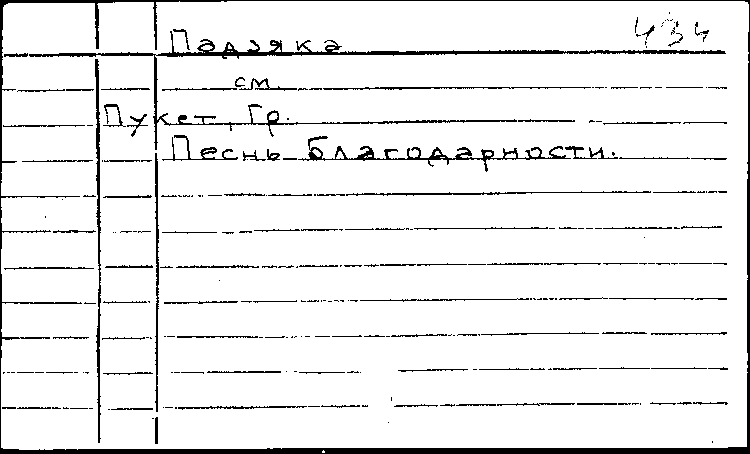 Падзяка 434
см.
Пукет, Гр.
Песнь благодарности.